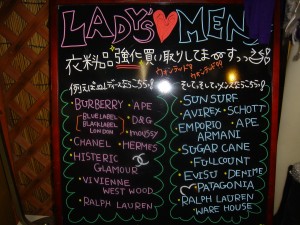 LADY'S♥MEN
衣料品強化買い取りしてまーすっ
ウオンテッド!! ウオンテッド!!
例えばぬ レディースだとこちらっ!
BURBERRY・APE
BLUE LABEL
BLACK LABEL
LONDON
・D&G
・moussy
・CHANEL・HERMES
・HISTERIC
GLAMOUR
・VIVIENNE
WEST WOOD
・RALPH LAUREN
そして、そして、メンズだとこちらっ!
・SUN SURF
・AVIREX・SCHOTT
・EMPORIO・APE
ARMANI
・SUGAR CANE
・FULLCOUNT
・EVISU・DENIME
・PATAGONIA
・RALPH LAUREN
・WARE HOUSE